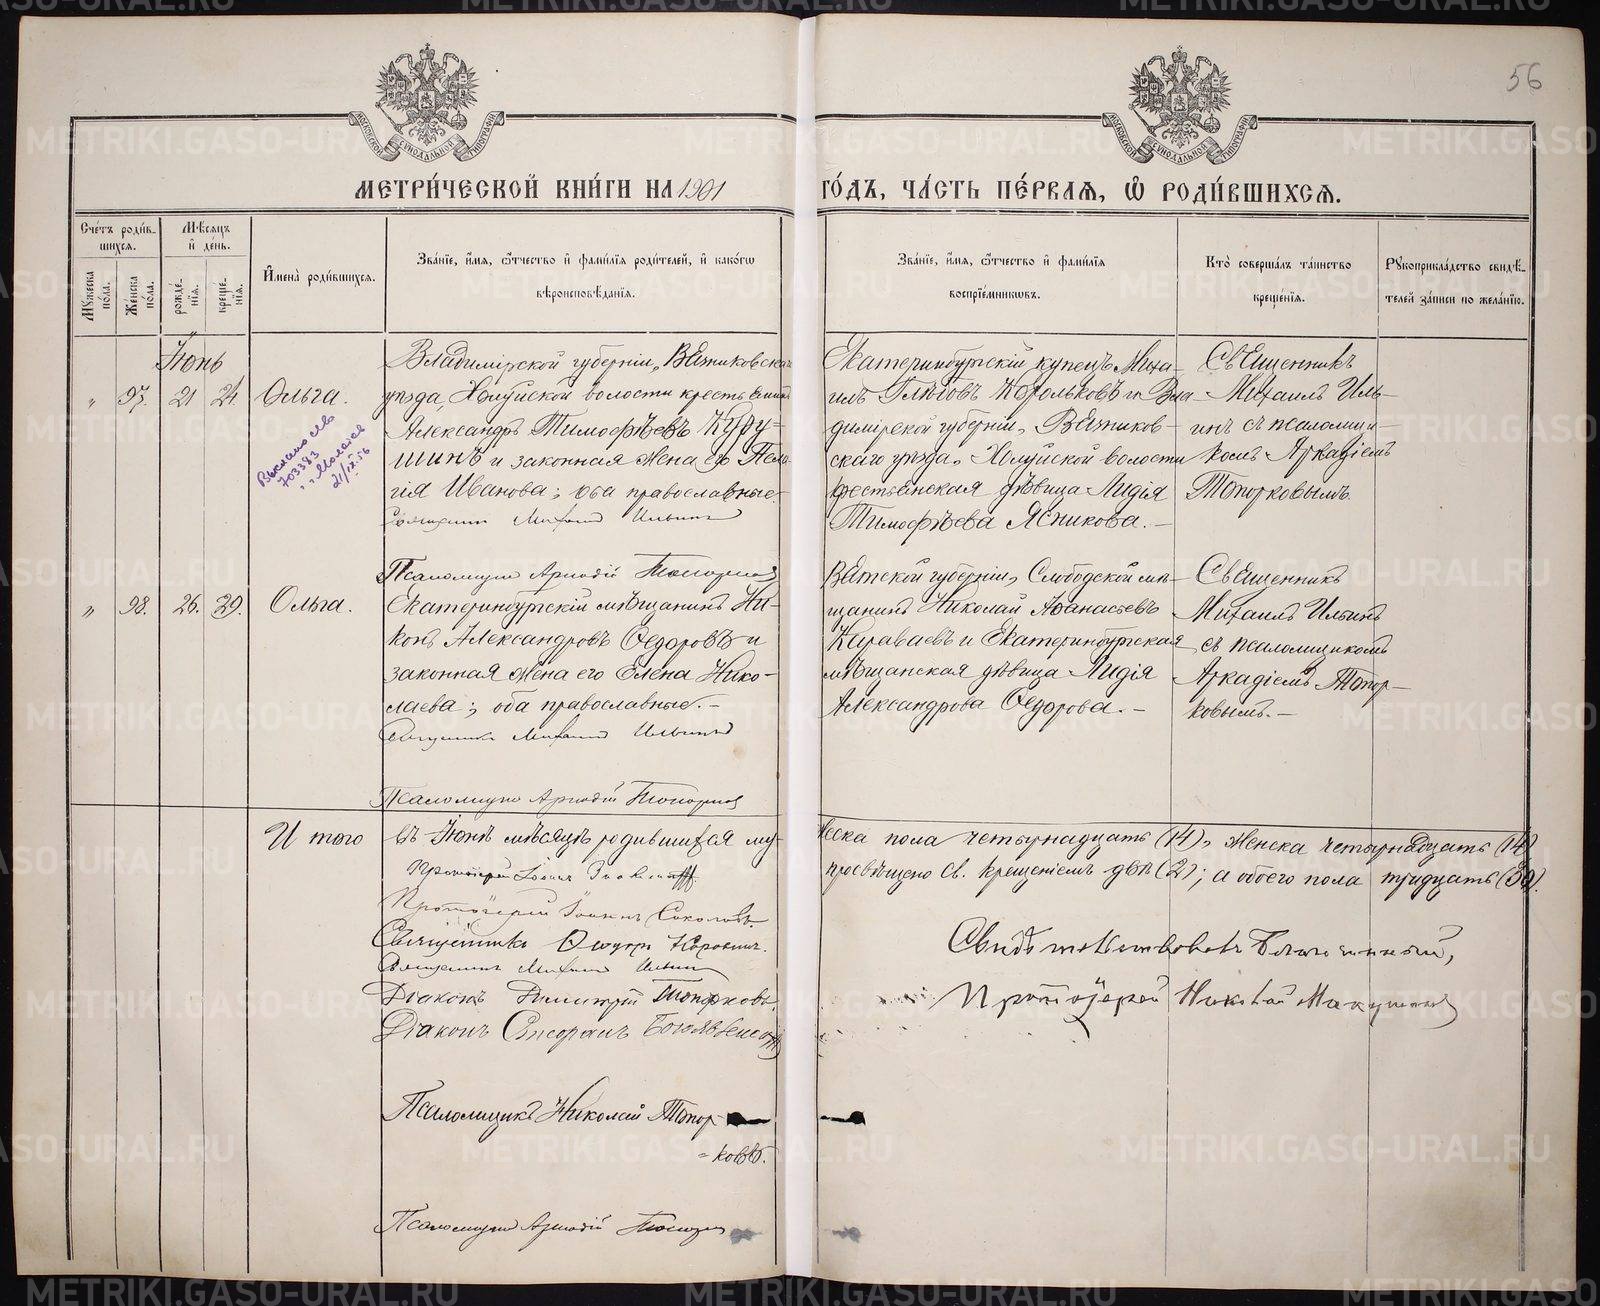 56
МЕТРИ́ЧЕСКОЙ КНИ́ГИ НА 1901 ГО́ДЪ, ЧА́СТЬ ПЕ́РВАѦ, Ѽ РОДИ́ВШИХСѦ.
Сче́тъ роди́в-
шихсѧ.
Мѣ́сѧцъ
и҆ де́нь.
Мꙋ́жеска по́ла.
Же́нска по́ла.
рожде́-
нїѧ.
креще́-
нїѧ.
И҆мена̀ роди́вшихсѧ.
Зва́нїе, и҆́мѧ, ѻ҆́тчество и҆ фами́лїѧ роди́телей, и҆ како́гѡ
вѣроисповѣ́данїѧ.
Зва́нїе, и҆́мѧ, ѻ҆́тчество и҆ фами́лїѧ
воспрїе́мникѡвъ.
Кто̀ соверша́лъ та́инство
креще́нїѧ.
Рꙋкоприкла́дство свидѣ́-
телей за́писи по жела́нїю.
Іюнь
" 97. 21 24. Ольга.
Владимірской губерніи, Вязниковскаго
уѣзда, Холуйской волости крестьянинъ
Александръ Тимофѣевъ
и законная жена его Пела-
гія Иванова; оба православные.
Священникъ Михаилъ Ильинъ
Псаломщикъ Аркадій Топорковъ
Екатеринбургскій купецъ Миха-
илъ Глѣбовъ Корольковъ и Вла-
димірской губерніи, Вязников-
скаго уѣзда, Холуйской волости
крестьянская дѣвица Лидія
Тимофѣева Ясникова.-
Священникъ
Михаилъ Иль-
инъ съ псаломщи-
комъ Аркадіемъ
Топорковымъ.
703383
21/IX.56
" 98. 26. 29. Ольга.
Екатеринбургскій мѣщанинъ Ни-
конъ Александровъ Ѳедоровъ и
законная жена его Елена Нико-
лаева; оба православные.-
Священникъ Михаилъ Ильинъ
Псаломщикъ Аркадій Топорковъ
Вятской губерніи, Слободской мѣ-
щанинъ Николай Аѳанасьевъ
Караваевъ и Екатеринбургская
мѣщанская дѣвица Лидія
Александрова Ѳедорова.-
Священникъ
Михаилъ Ильинъ
съ псаломщикомъ
Аркадіемъ Топор-
ковымъ.-
И того въ Іюнѣ мѣсяцѣ родившихся му-
жеска пола четырнадцать (14), женска четырнадцать (14)
просвѣщено Св. Крещеніемъ двѣ (2); а обоего пола тридцать (30).
Протоіерей Іоаннъ
Протоіерей Іоаннъ Соколовъ.
Священникъ
Священникъ Михаилъ Ильинъ
Діаконъ Димитрій Топорковъ
Діаконъ Богоявленскій
Псаломщикъ Николай Топор-
=ковъ.
Псаломщикъ Аркадій Топорковъ
Свидѣтельствовалъ Благочинный,
Протоіерей Николай
METRIKI.GASO-URAL.RU